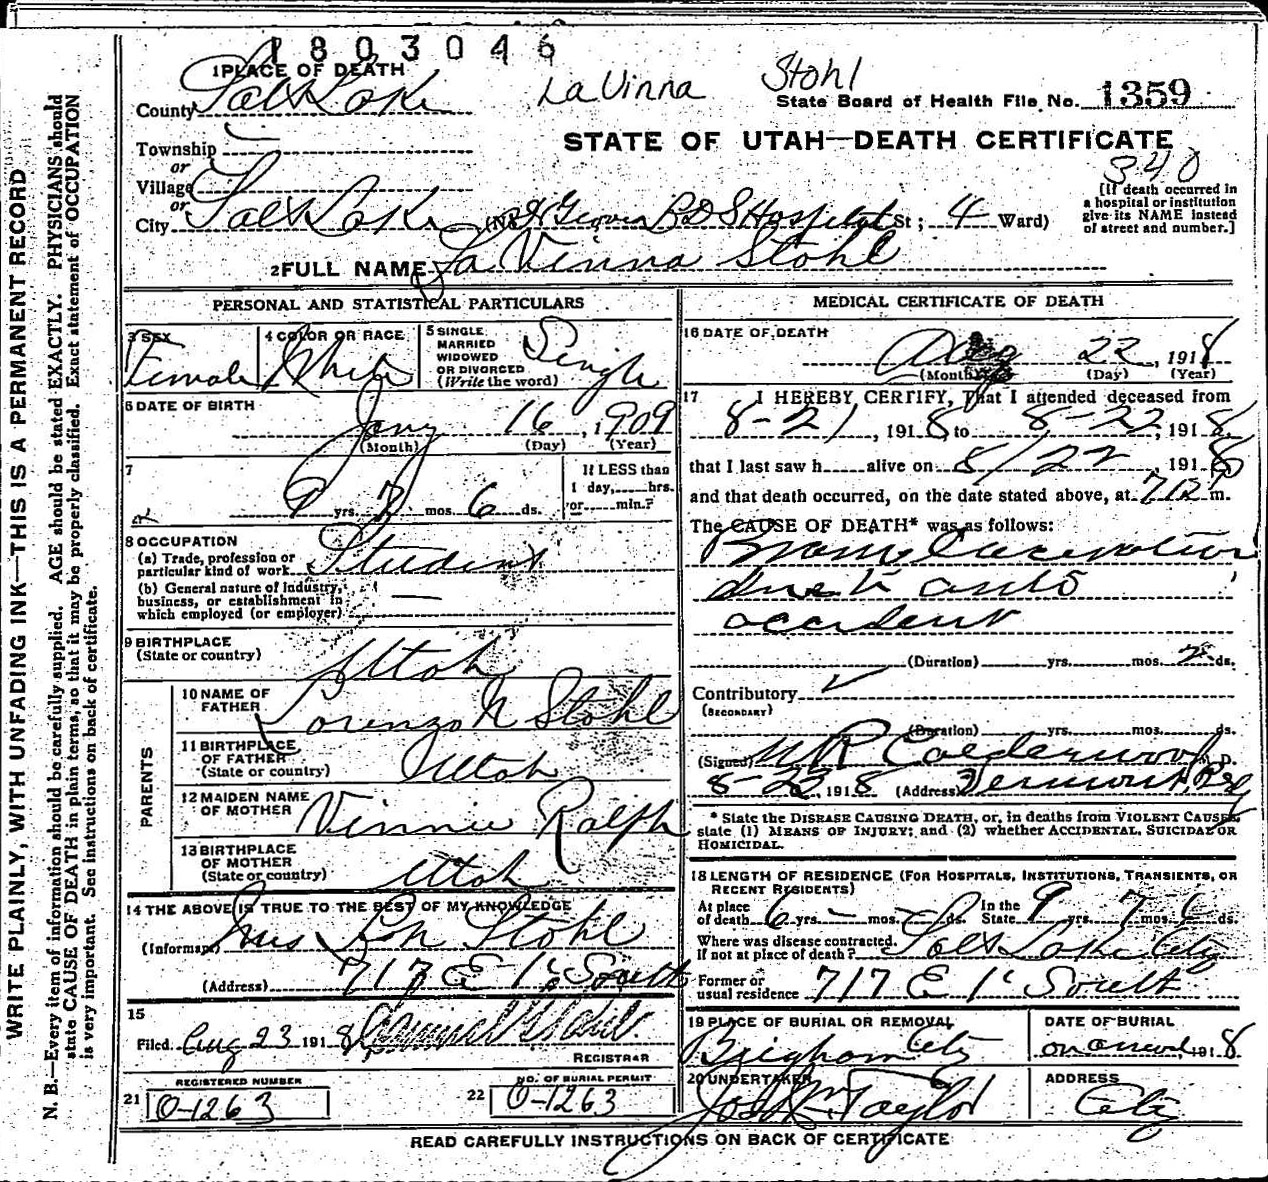 1803046
1 PLACE OF DEATH
LaVinna Stohl
County Salt Lake
State Board of Health File No. 1359
Township
STATE OF UTAH—DEATH CERTIFICATE
or
340
Village
[If death occurred in
a hospital or institution
give its NAME instead
of street and number.]
or
City Salt Lake (No. LDS Hospital St; 4 Ward)
2 FULL NAME La Vinna Stohl
PERSONAL AND STATISTICAL PARTICULARS
3 SEX Female
4 COLOR OR RACE White
5 SINGLE
MARRIED
WIDOWED
OR DIVORCED
(Write the word) Single
6 DATE OF BIRTH
Jany 16, 1909
(Month) (Day) (Year)
7
9 yrs. 7 mos. 6 ds.
If LESS than
1 day,......hrs.
or......min.?
8 OCCUPATION
(a) Trade, profession or
particular kind of work Student
(b) General nature of industry,
business, or establishment in
which employed (or employer) —
9 BIRTHPLACE
(State or country) Utah
PARENTS
10 NAME OF
FATHER Lorenzo N Stohl
11 BIRTHPLACE
OF FATHER
(State or country) Utah
12 MAIDEN NAME
OF MOTHER Vinnie Ralph
13 BIRTHPLACE
OF MOTHER
(State or country) Utah
14 THE ABOVE IS TRUE TO THE BEST OF MY KNOWLEDGE
(Informant) Mrs Stohl
(Address) 717 E 1' So South
15
Filed Aug 23 1918
REGISTRAR
21 REGISTERED NUMBER
0-1263
22 NO. OF BURIAL PERMIT
0-1263
MEDICAL CERTIFICATE OF DEATH
16 DATE OF DEATH
Aug 22, 1918
(Month) (Day) (Year)
17 I HEREBY CERTIFY, That I attended deceased from
8-21, 1918, to 8-22, 1918,
that I last saw h...... alive on 8/22, 1918
and that death occurred, on the date stated above, at 7 m.
The CAUSE OF DEATH* was as follows:
Brain laceration
due to auto
accident
(Duration) yrs. mos. 2 ds.
Contributory
(SECONDARY)
(Duration) yrs. mos. ds.
(Signed) Calderwood M. D.
8-22, 1918 (Address) Vermont Bldg
* State the DISEASE CAUSING DEATH, or, in deaths from VIOLENT CAUSES,
state (1) MEANS OF INJURY; and (2) whether ACCIDENTAL, SUICIDAL OR
HOMICIDAL.
18 LENGTH OF RESIDENCE (FOR HOSPITALS, INSTITUTIONS, TRANSIENTS, OR
RECENT RESIDENTS)
At place
of death 6 yrs. – mos. – ds. In the
State 9 yrs. 7 mos. 6 ds.
Where was disease contracted,
if not at place of death? Salt Lake City
Former or
usual residence 717 E 1' South
19 PLACE OF BURIAL OR REMOVAL
Brigham City
DATE OF BURIAL
1918
20 UNDERTAKER
Taylor
ADDRESS
City
READ CAREFULLY INSTRUCTIONS ON BACK OF CERTIFICATE
WRITE PLAINLY, WITH UNFADING INK—THIS IS A PERMANENT RECORD
N. B.—Every item of information should be carefully supplied. AGE should be stated EXACTLY. PHYSICIANS should
state CAUSE OF DEATH in plain terms, so that it may be properly classified. Exact statement of OCCUPATION
is very important. See instructions on back of certificate.